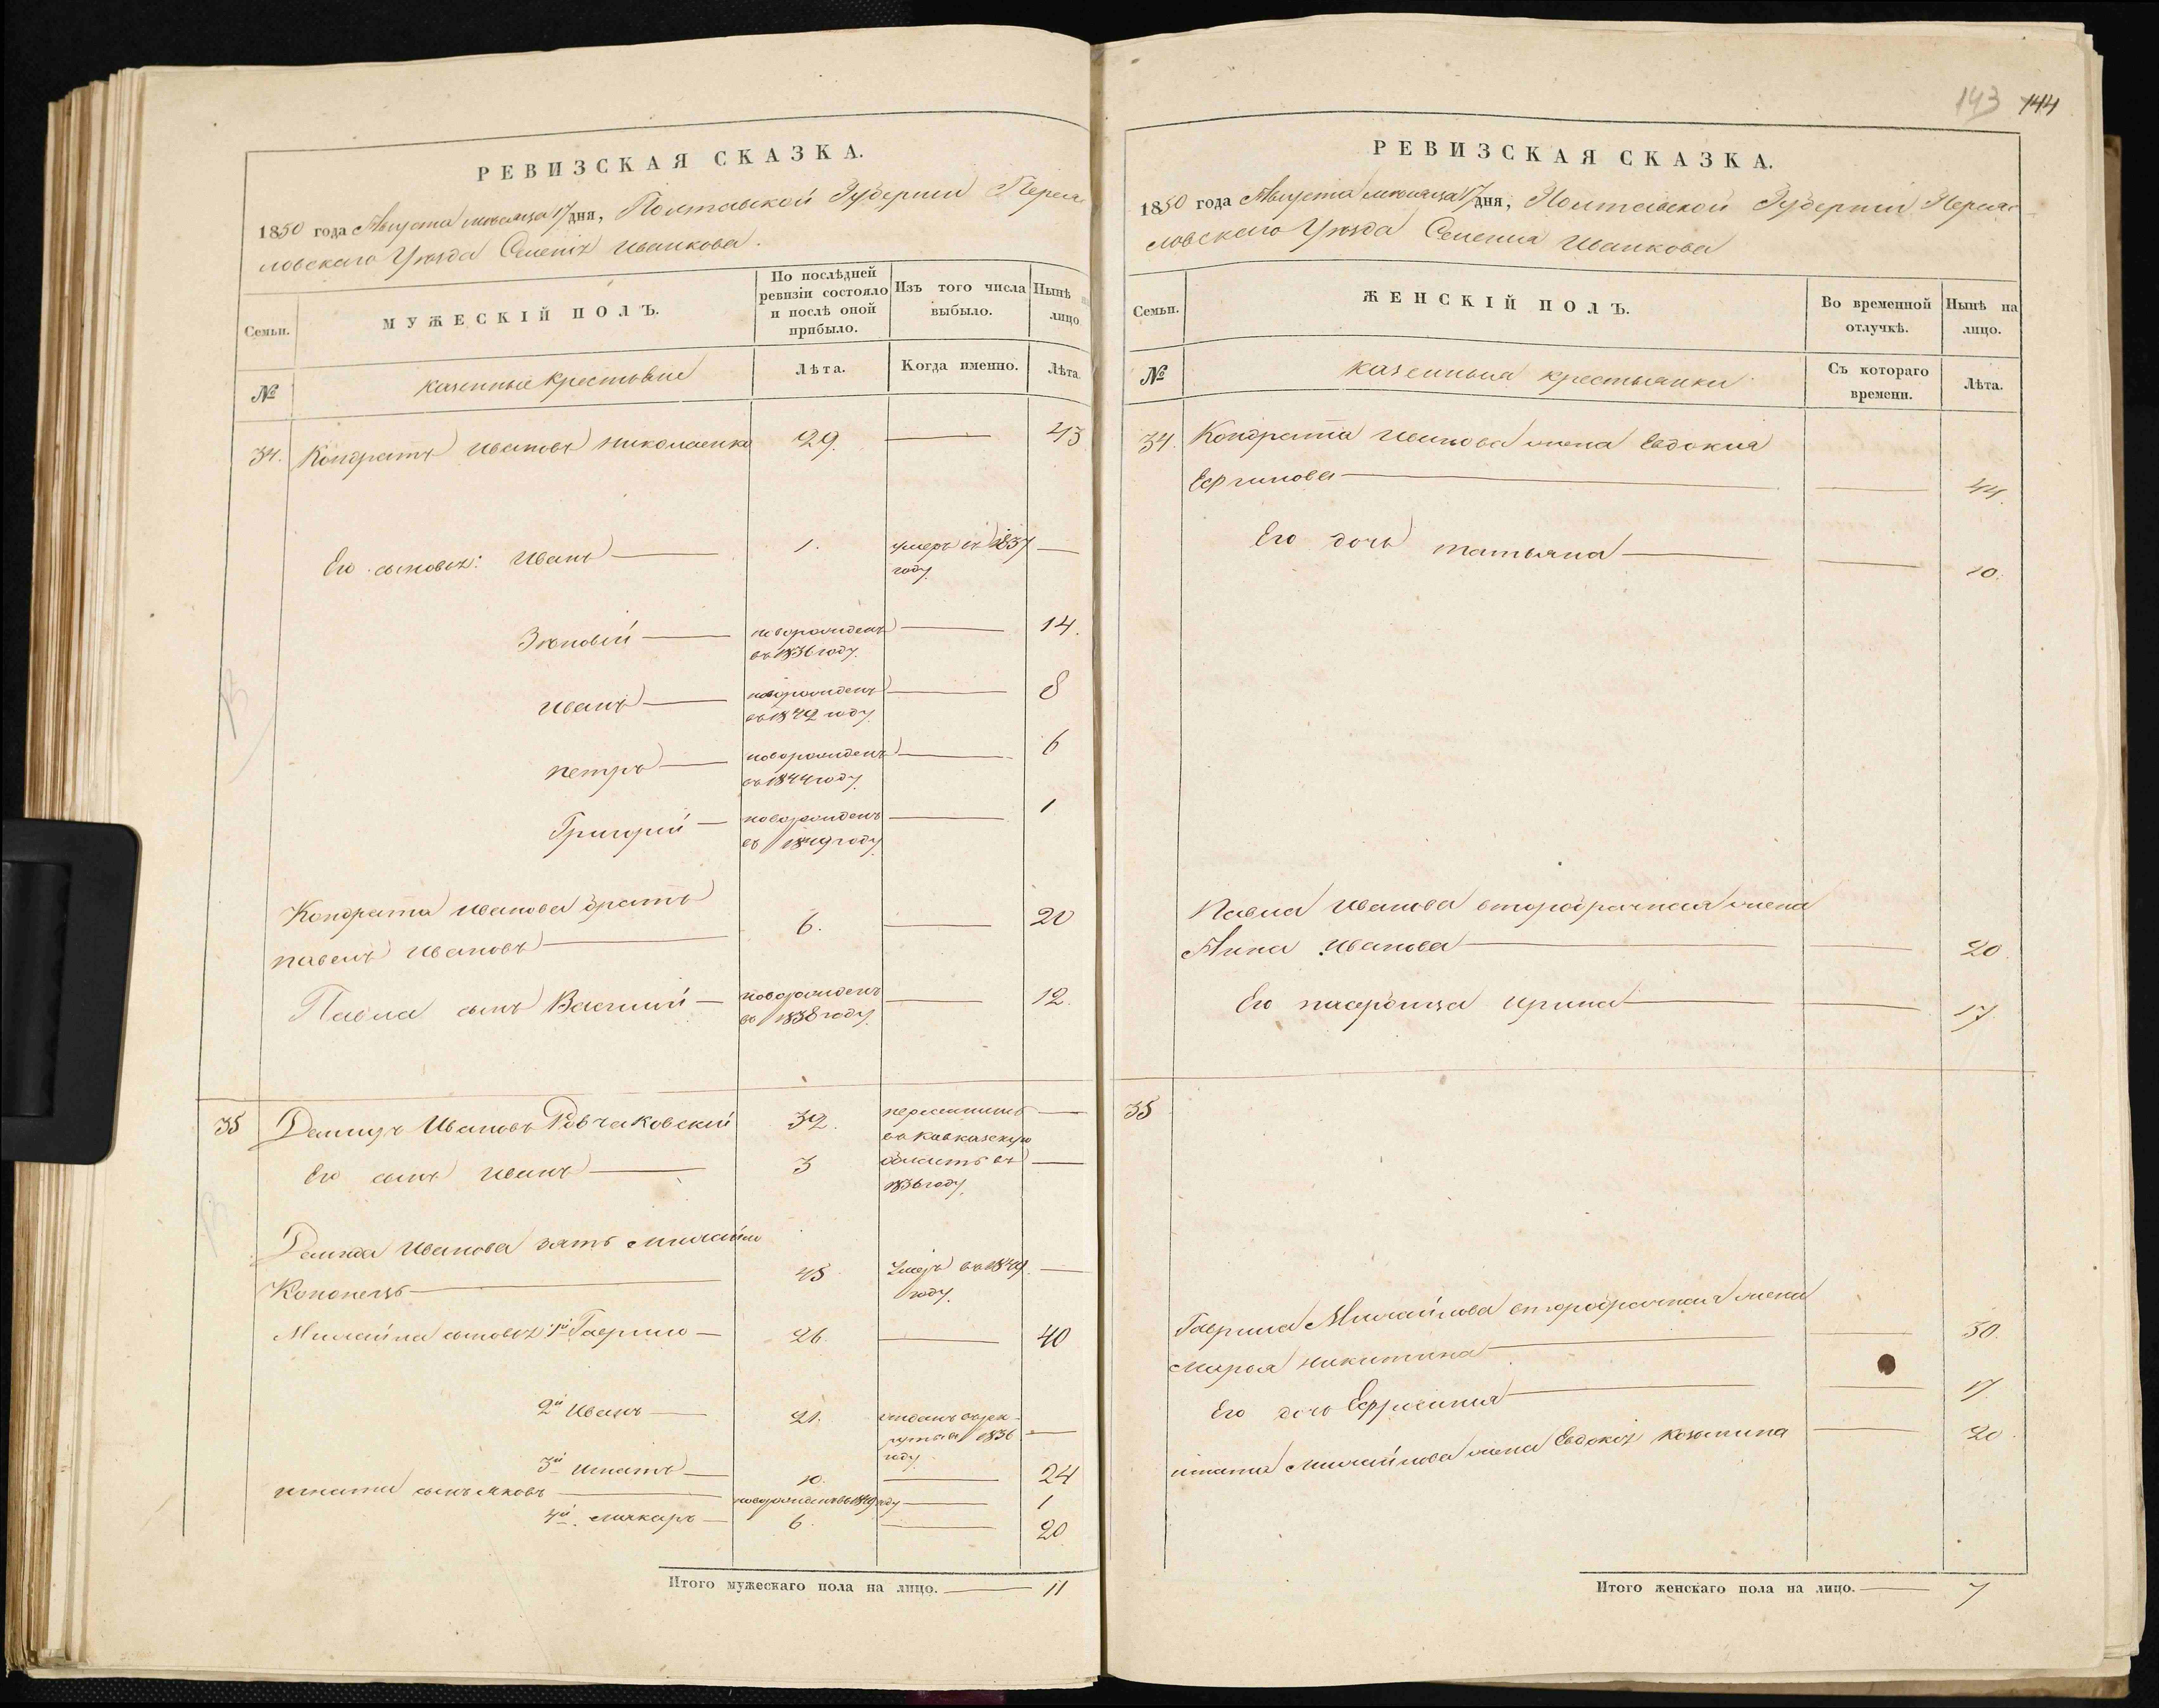 РЕВИЗСКАЯ СКАЗКА.
1850 года Августа месяца 17 дня, Полтавской Губернии Переяс
ловскаго Уезда Селенія Иванкова.
Семьи.
МУЖЕСКІЙ ПОЛЪ.
По послѣдней ревизіи состояло и послѣ оной прибыло.
Изъ того числа выбыло.
Нынѣ на лицо
№
казенные крестьяне
Лѣта.
Когда именно.
Лѣта.
34. Кондратъ Ивановъ Николаенко 29. — 43
Его сыновья: Иванъ — 1. умеръ въ 1837 —
году.
Зѣновій — новорожденъ — 14.
въ 1836 году.
Иванъ — новорожденъ — 8
въ 1842 году.
Петръ — новорожденъ — 6
въ 1844 году.
Григорій — новорожденъ — 1
въ 1849 году
Кондрата Иванова братъ
Павелъ Ивановъ — 6. — 20
Павла сынъ Василий — новорожденъ — 12.
въ 1838 году.
35 Демидъ Ивановъ 32. переселились —
въ Кавказскую
Его сынъ Иванъ — 3 область въ —
1836 году.
Демида Иванова зять Михайло
Кононецъ — 45 Умеръ въ 1849. —
году.
Михайла сыновья: 1й Гаврило — 26. — 40
2й Иванъ — 21. отданъ въ рек-
руты въ 1836 —
году.
3й Игнатъ — 10. — 24
Игната сынъ Яковъ — новорожденъ въ 1849 году — 1
4й Макаръ — 6. — 20
Итого мужескаго пола на лицо. — 11
143 144
РЕВИЗСКАЯ СКАЗКА.
1850 года Августа месяца 17 дня, Полтавской Губерніи Переяс-
ловскаго Уезда Селенія Иванкова
Семьи.
ЖЕНСКІЙ ПОЛЪ.
Во временной отлучкѣ.
Нынѣ на лицо.
№
казенныя крестьянки
Съ котораго времени.
Лѣта.
34. Кондрата Иванова жена Евдокия
— — 44.
Его дочь Татьяна — — 10.
Павла Иванова второбрачная жена
Анна Иванова — — 20.
Его падчерица Ирина — — 17
35
Гаврила Михайлова второбрачная жена
Марья Никитина — — 30.
Его дочь Ефросинія — — 17
Игната Михайлова жена Евдокія Козьмина — 20.
Итого женскаго пола на лицо. — 7